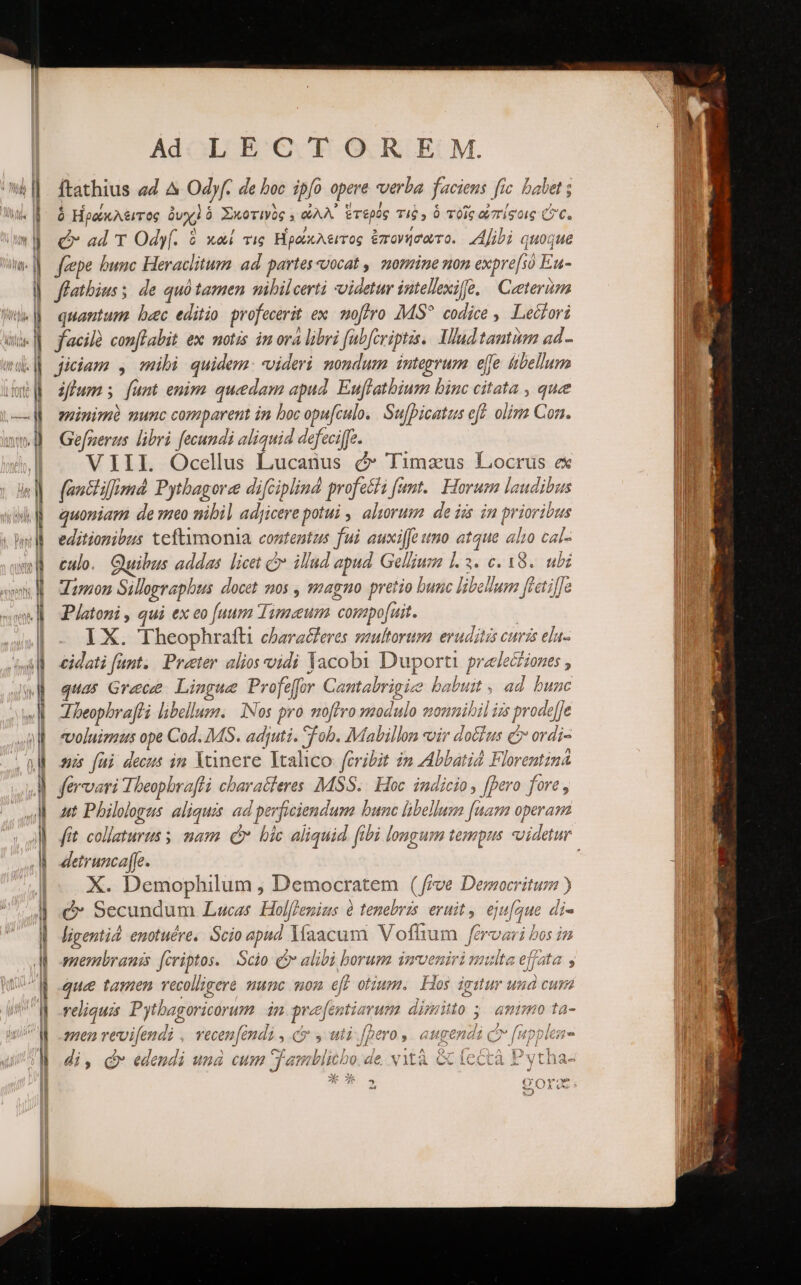 Ad LECTOREM.
ſtathius ad Λ Odyſ. de hoc ipſo opere verba faciens ſic habet;
ὁ Ἡράκλειτος ὀυχὶ ὁ Σκοτινὸς, ἀλλ' ἕτερός τις, ὁ τοῖς ἀπίςοις &c.
& ad T Odyſ. ὃ καί τις Ἡράκλειτος ἐπονήσατο. Alibi quoque
ſæpe hunc Heraclitum ad partes vocat, nomine non expreſſò Eu-
ſtathius; de quò tamen nihil certi videtur intellexiſſe. Cæterùm
quantum hæc editio profecerit ex noſtro MSº codice, Lectori
facilè conſtabit ex notis in orâ libri ſubſcriptis. Illud tantùm ad-
jiciam, mihi quidem videri nondum integrum eſſe libellum
iſtum; ſunt enim quædam apud Euſtathium hinc citata, quæ
minimè nunc comparent in hoc opuſculo. Suſpicatus eſt olim Con.
Geſnerus libri ſecundi aliquid defeciſſe.
VIII. Ocellus Lucanus & Timæus Locrus ex
ſanctiſſimâ Pythagoræ diſciplinâ profecti ſunt. Horum laudibus
quoniam de meo nihil adjicere potui, aliorum de iis in prioribus
editionibus teſtimonia contentus fui auxiſſe uno atque alio cal-
culo. Quibus addas licet & illud apud Gellium l. 3. c. 18. ubi
Timon Sillographus docet nos, magno pretio hunc libellum ſtetiſſe
Platoni, qui ex eo ſuum Timæum compoſuit.
IX. Theophraſti characteres multorum eruditis curis elu-
cidati ſunt. Præter alios vidi Jacobi Duporti prælectiones,
quas Græcæ Linguæ Profeſſor Cantabrigiæ habuit, ad hunc
Theophraſti libellum. Nos pro noſtro modulo nonnihil iis prodeſſe
voluimus ope Cod. MS. adjuti. Joh. Mabillon vir doctus & ordi-
nis ſui decus in Itinere Italico ſcribit in Abbatiâ Florentinâ
ſervari Theophraſti characteres MSS. Hoc indicio, ſpero fore,
ut Philologus aliquis ad perficiendum hunc libellum ſuam operam
ſit collaturus; nam & hîc aliquid ſibi longum tempus videtur
detruncaſſe.
X. Demophilum, Democratem (ſive Democritum)
& Secundum Lucas Holſtenius è tenebris eruit, ejuſque di-
ligentiâ enotuêre. Scio apud Iſaacum Voſſium ſervari hos in
membranis ſcriptos. Scio & alibi horum inveniri multa effata,
quæ tamen recolligere nunc non eſt otium. Hos igitur unà cum
reliquis Pythagoricorum in præſentiarum dimitto; animo ta-
men reviſendi, recenſendi, & , uti ſpero, augendi & ſupplen-
di, & edendi unà cum Jamblicho de vitâ & ſectâ Pytha-
** 2 goræ.